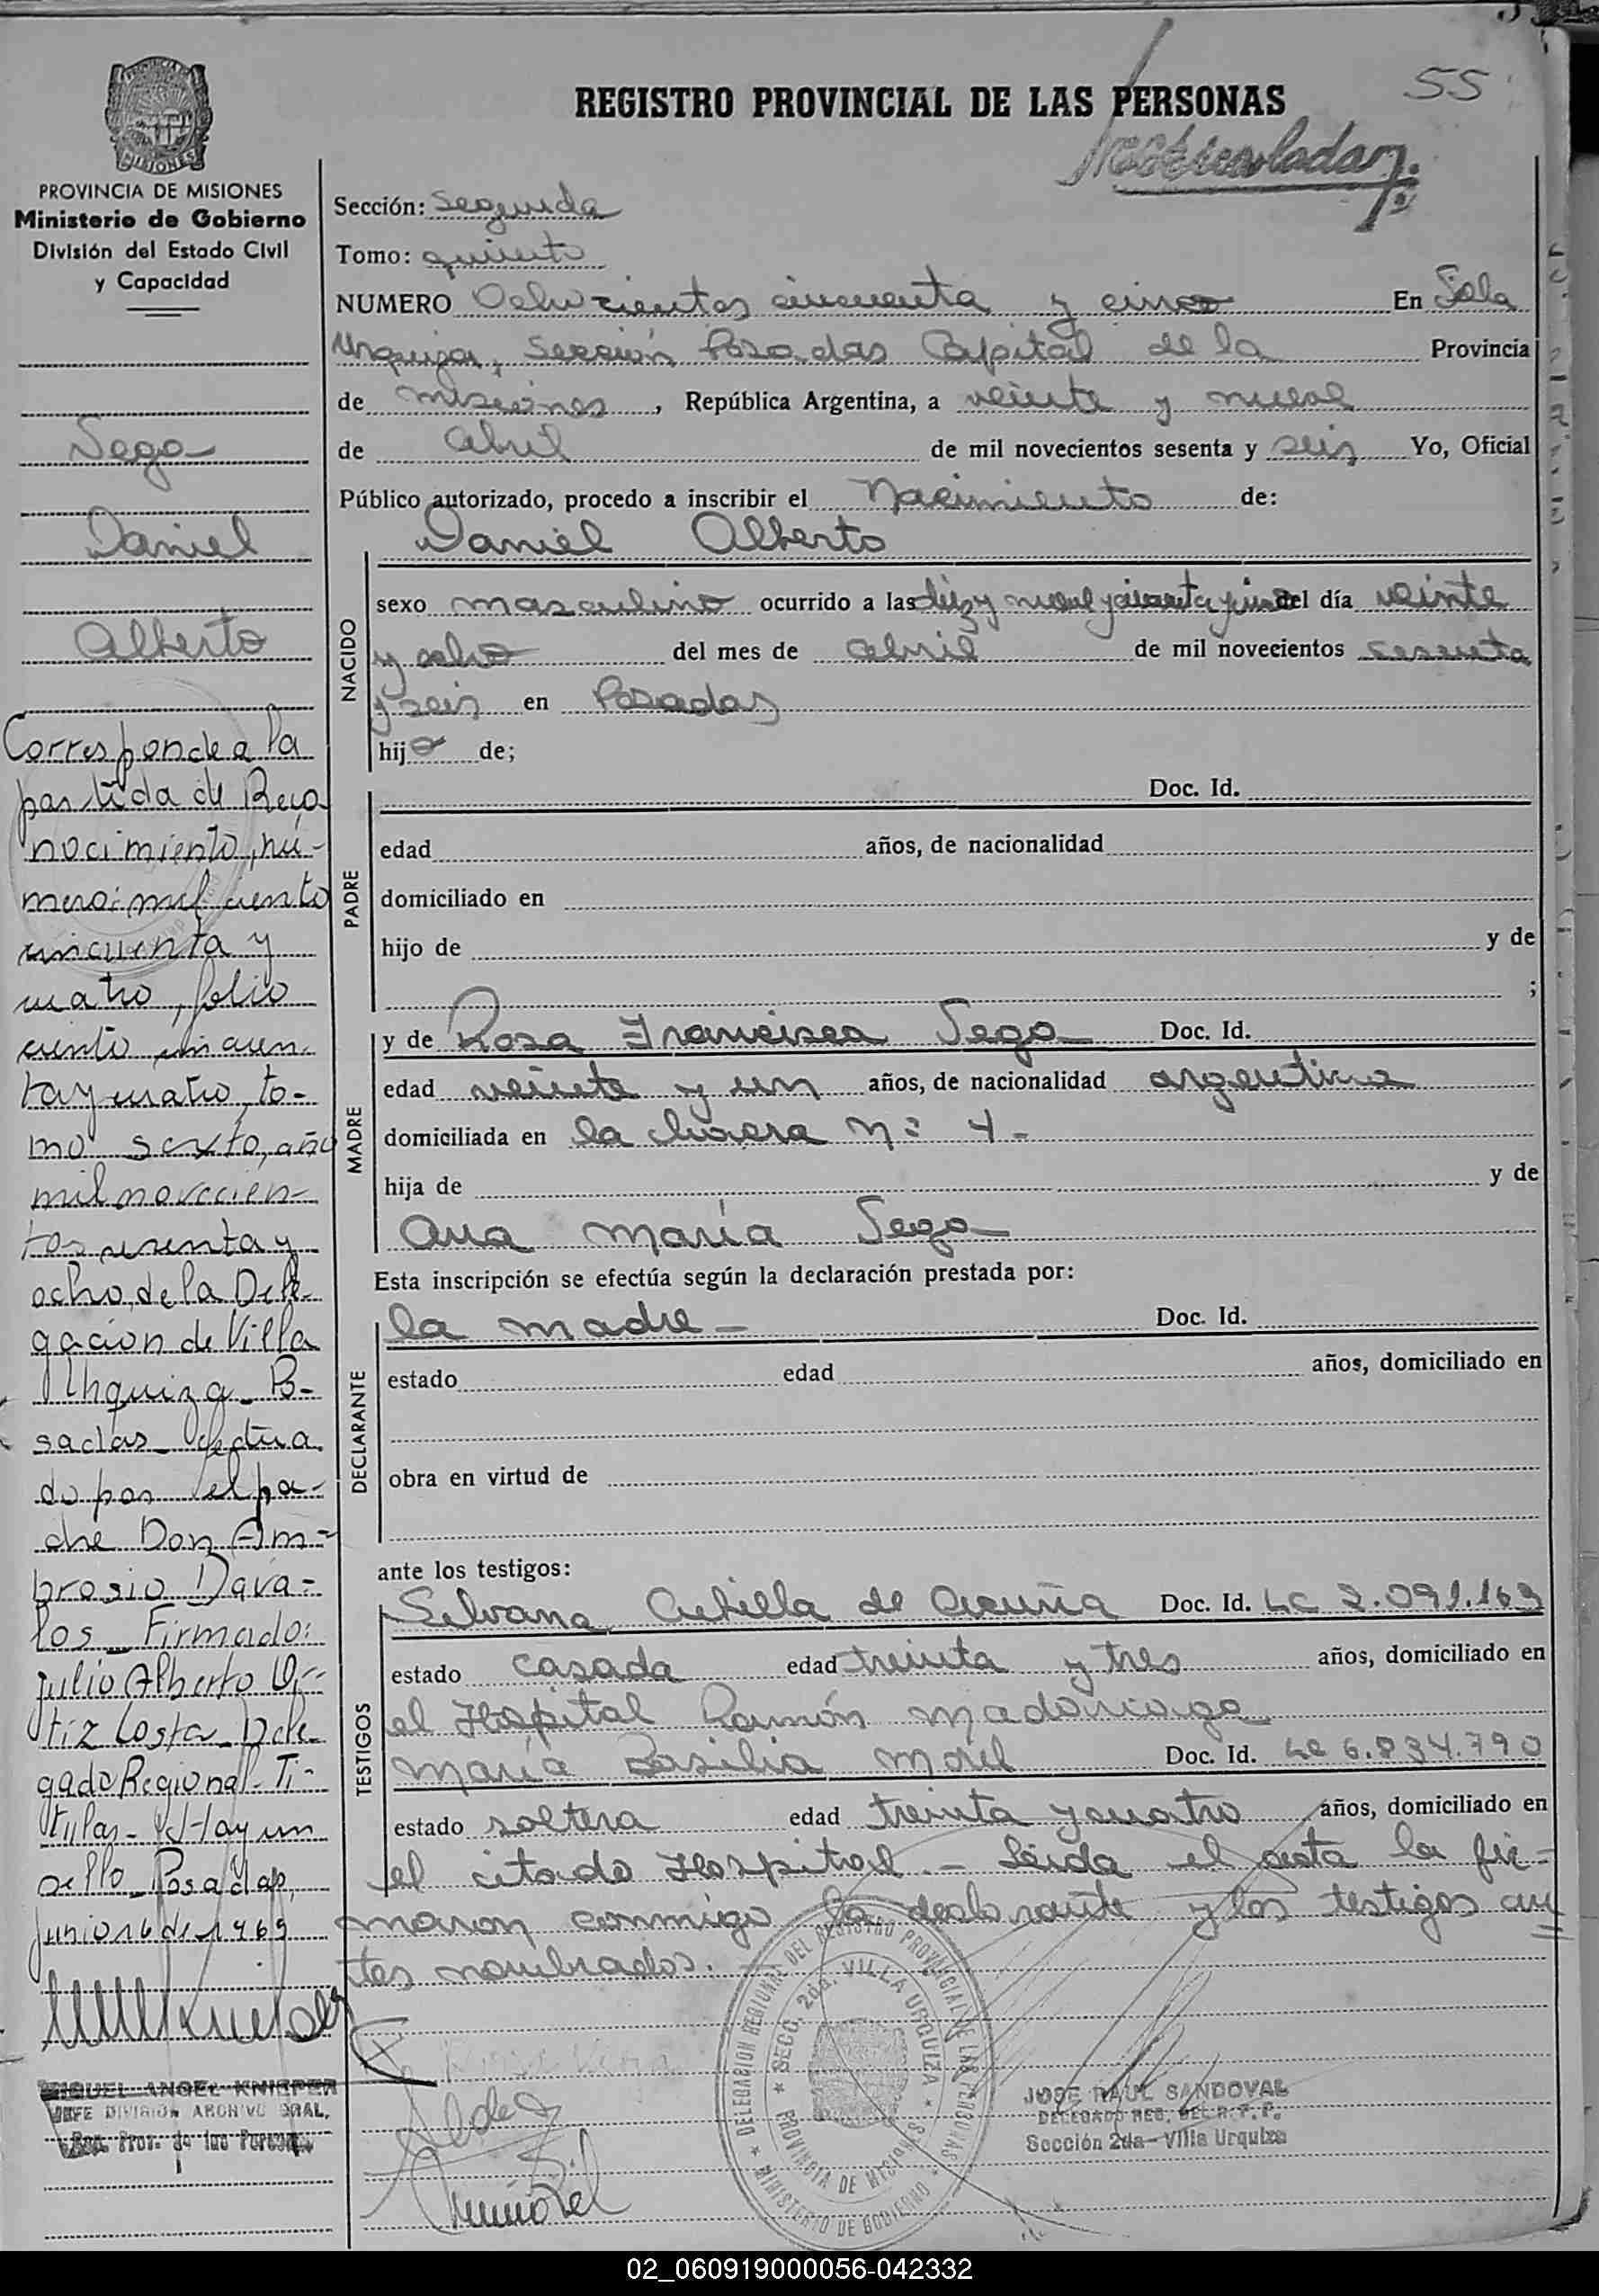 55
REGISTRO PROVINCIAL DE LAS PERSONAS
MISIONES
PROVINCIA DE MISIONES
Ministerio de Gobierno
División del Estado Civil
y Capacidad
Sego
Daniel
Alberto
Corresponde a la
partida de Reco-
nocimiento, nú-
mero: mil ciento
cincuenta y
cuatro, folio
ciento cincuen-
ta y cuatro, to-
mo sexto, año
mil novecien-
tos sesenta y
ocho, de la Dele-
gación de Villa
Urquiza - Po-
sadas - efectua
do por el pa-
dre Don Am-
brosio Dava-
los - Firmado:
Julio Alberto Or-
tiz Costa - Dele-
gado Regional - Ti-
tular - Hay un
sello - Posadas,
junio 16 de 1969
MIGUEL ANGEL KNIEPER
JEFE DIVISION ARCHIVO GRAL.
Reg. Prov. de las Personas
Sección: Segunda
Tomo: quinto
NUMERO Ochocientos cincuenta y cinco En Sala
Urquiza, Sección Posadas Capital de la Provincia
de Misiones, República Argentina, a veinte y nueve
de abril de mil novecientos sesenta y seis Yo, Oficial
Público autorizado, procedo a inscribir el Nacimiento de:
Daniel Alberto
NACIDO
sexo masculino ocurrido a las diez y nueve y cincuenta y del día veinte
y ocho del mes de abril de mil novecientos sesenta
y seis en Posadas
hijo de;
PADRE
Doc. Id.
edad años, de nacionalidad
domiciliado en
hijo de y de
;
MADRE
y de Rosa Francisca Sego Doc. Id.
edad veinte y un años, de nacionalidad argentina
domiciliada en la chacra Nº 4 -
hija de y de
Ana María Sego
Esta inscripción se efectúa según la declaración prestada por:
DECLARANTE
la madre - Doc. Id.
estado edad años, domiciliado en
obra en virtud de
ante los testigos:
TESTIGOS
Silvana de Acuña Doc. Id. LC 2.091.163
estado casada edad treinta y tres años, domiciliado en
el Hospital Ramón Madariaga
María Basilia Morel Doc. Id. LC 6.834.790
estado soltera edad treinta y cuatro años, domiciliado en
el citado Hospital. - Leída el acta la fir-
maron conmigo la declarante y los testigos an
tes nombrados. -
DELEGACION REGIONAL DEL REGISTRO PROVINCIAL DE LAS PERSONAS
SECC. 2da. VILLA URQUIZA
PROVINCIA DE MISIONES
MINISTERIO DE GOBIERNO
JOSE RAUL SANDOVAL
DELEGADO REG. DEL R. P. P.
Sección 2da - Villa Urquiza
02_060919000056-042332